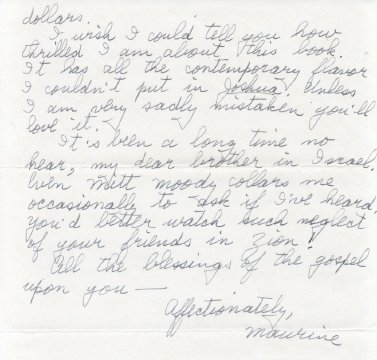 dollars.
I wish I could tell you how
thrilled I am about this book.
It has all the contemporary flavor
I couldn't put in Joshua. Unless
I am very sadly mistaken you'll
love it.
It's been a long time no
hear, my dear brother in Israel.
Even Milt Moody collars me
occasionally to ask if I've heard.
You'd better watch such neglect
of your friends in Zion!
All the blessings of the gospel
upon you —
Affectionately,
Maurine